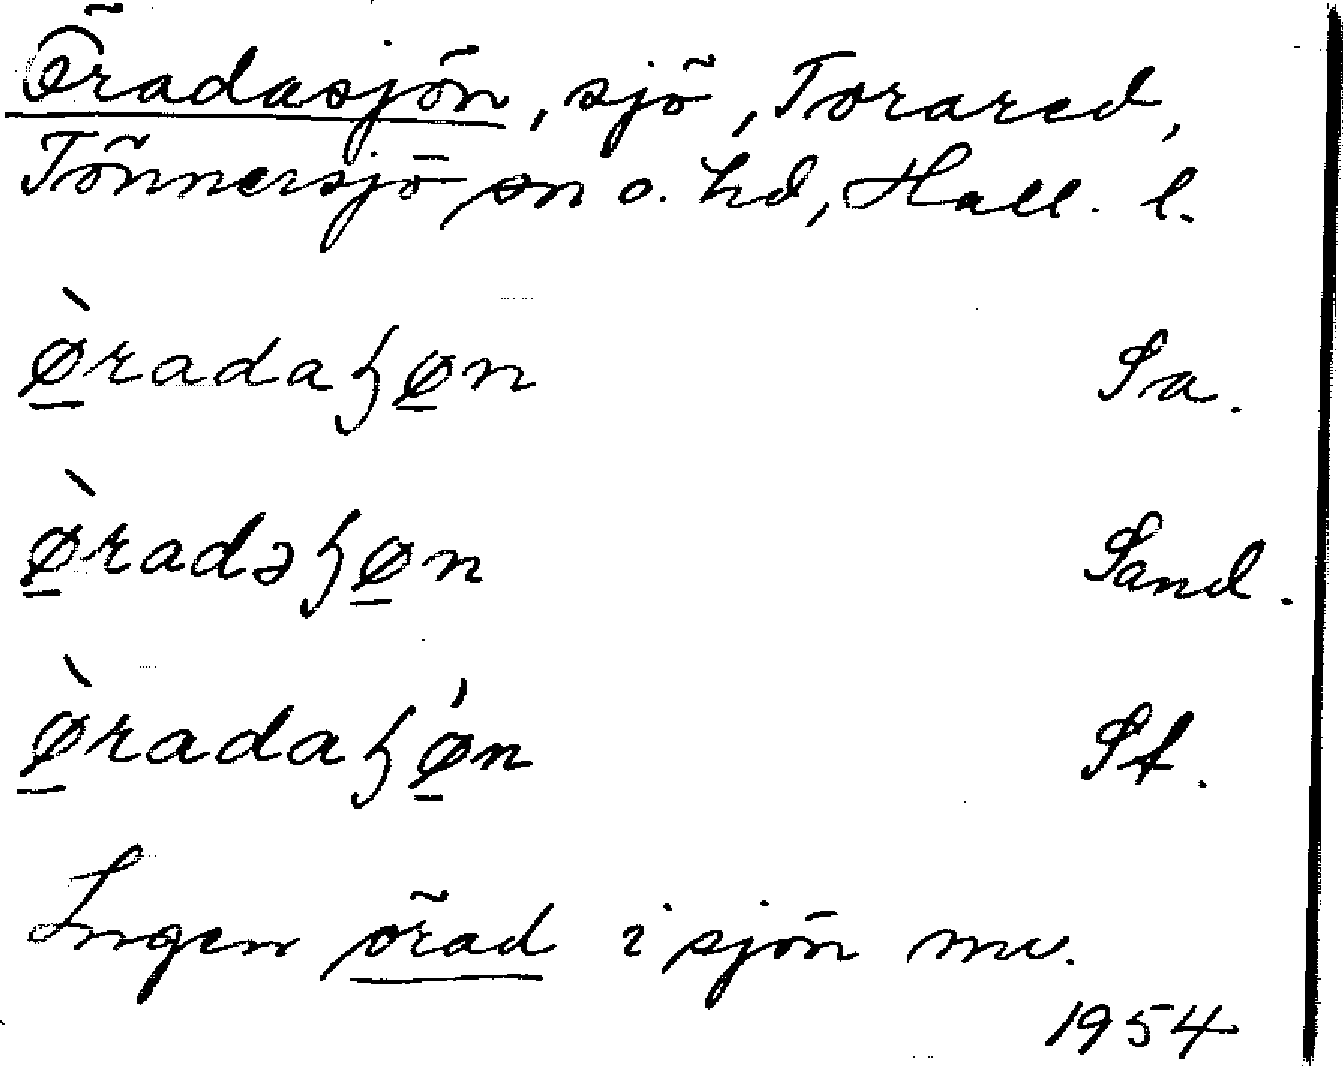 Öradasjön, sjö, Torared,
Tönnersjö sn o. hd, Hall. l.
ø̱̀radaꞕø̱n Sa.
ø̱̀radəꞕø̱n Sand.
ø̱̀radaꞕǿ̱n St.
Ingen örad i sjön nu.
1954